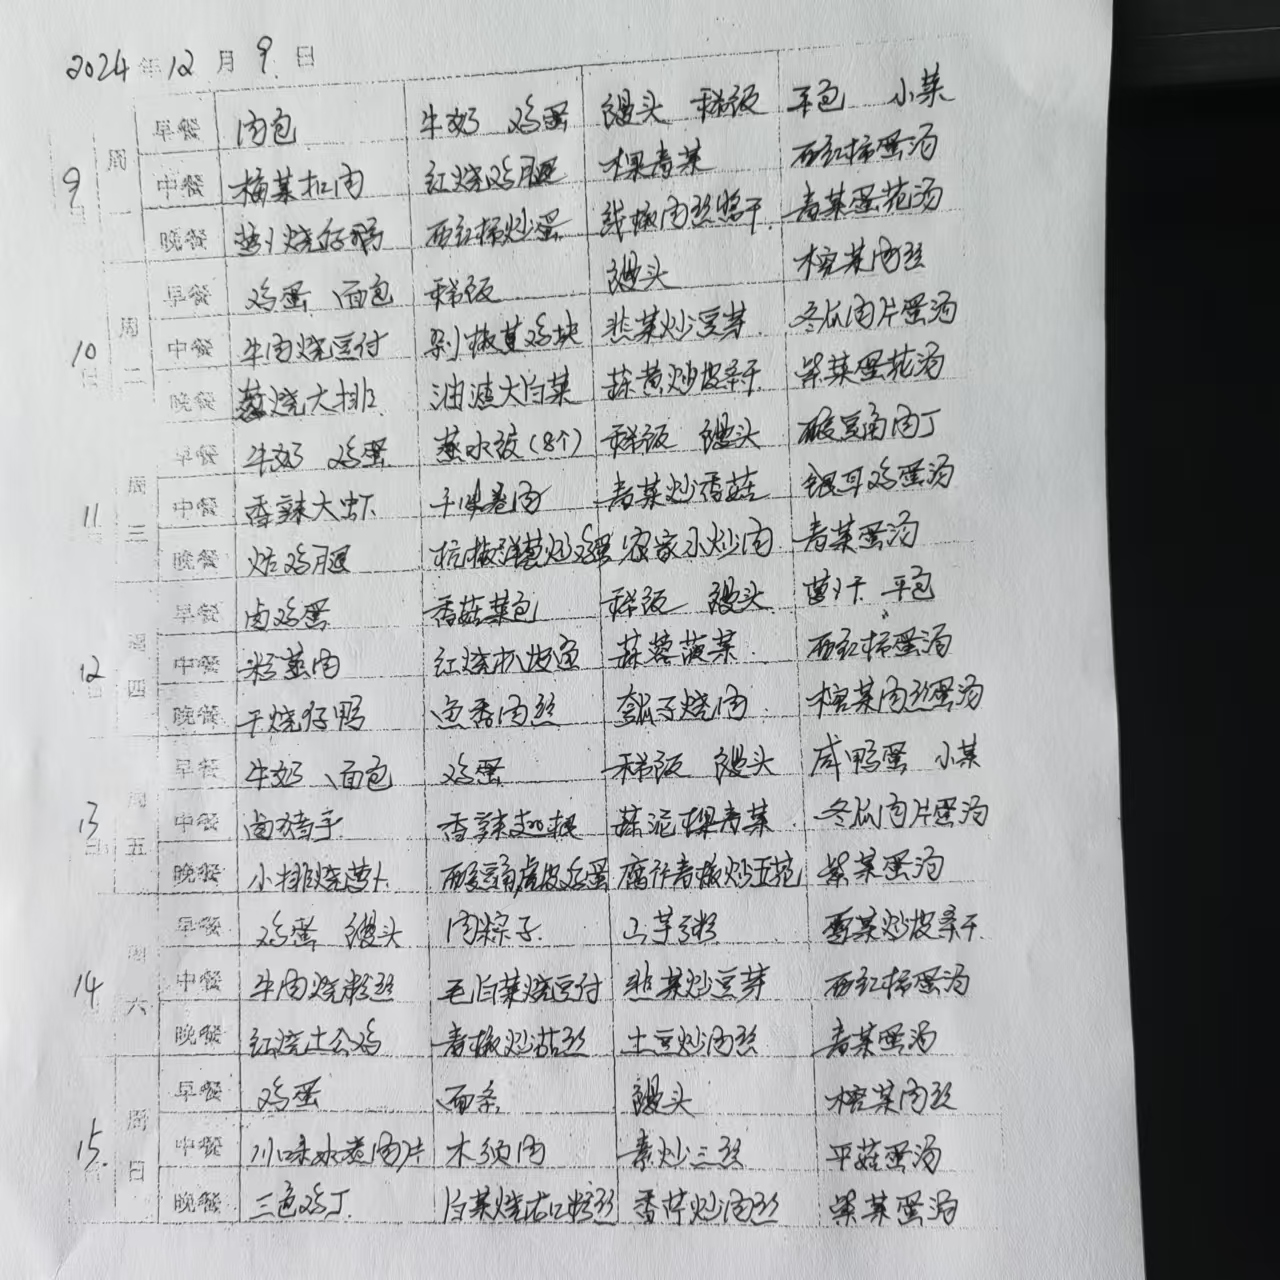 2024年12月9日
9日 周一 早餐 肉包 牛奶 鸡蛋 馒头 稀饭 平包 小菜
中餐 梅菜扣肉 红烧鸡腿 棵青菜 西红柿蛋汤
晚餐 烧仔鸭 西红柿炒蛋 线椒肉丝 干 青菜蛋花汤
10日 周二 早餐 鸡蛋、面包 稀饭 馒头 榨菜肉丝
中餐 牛肉烧豆付 剁椒 鸡块 韭菜炒豆芽 冬瓜肉片蛋汤
晚餐 葱烧大排 油渣大白菜 蒜黄炒皮条干 紫菜蛋花汤
11日 周三 早餐 牛奶 鸡蛋 蒸水饺(8个) 稀饭 馒头 酸豆角肉丁
中餐 香辣大虾 千味卷肉 青菜炒香菇 银耳鸡蛋汤
晚餐 炸鸡腿 杭椒洋葱炒鸡蛋 农家小炒肉 青菜蛋汤
12日 周四 早餐 卤鸡蛋 香菇菜包 稀饭 馒头 萝卜干 平包
中餐 粉蒸肉 红烧扒皮鱼 蒜蓉菠菜 西红柿蛋汤
晚餐 干烧仔鸭 鱼香肉丝 瓠子烧肉 榨菜肉丝蛋汤
13日 周五 早餐 牛奶、面包 鸡蛋 稀饭 馒头 咸鸭蛋 小菜
中餐 卤猪手 香辣翅根 蒜泥棵青菜 冬瓜肉片蛋汤
晚餐 小排烧萝卜 酸豆角虎皮鸡蛋 腐竹青椒炒五花 紫菜蛋汤
14 周六 早餐 鸡蛋 馒头 肉粽子 山芋粥 雪菜炒皮条干
中餐 牛肉烧粉丝 毛白菜烧豆付 韭菜炒豆芽 西红柿蛋汤
晚餐 红烧土公鸡 青椒炒茹丝 土豆炒肉丝 青菜蛋汤
15 周日 早餐 鸡蛋 面条 馒头 榨菜肉丝
中餐 川味水煮肉片 木须肉 素炒三丝 平菇蛋汤
晚餐 三色鸡丁 白菜烧 粉丝 香芹炒肉丝 紫菜蛋汤